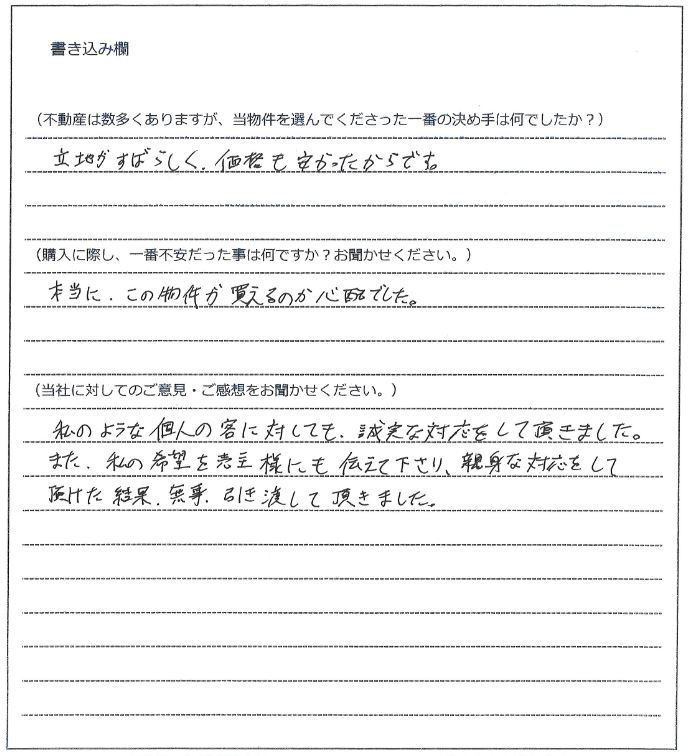 書き込み欄
(不動産は数多くありますが、当物件を選んでくださった一番の決め手は何でしたか?)
立地がすばらしく、価格も安かったからです。
(購入に際し、一番不安だった事は何ですか?お聞かせください。)
本当に、この物件が買えるのか心配でした。
(当社に対してのご意見・ご感想をお聞かせください。)
私のような個人の客に対しても、誠実な対応をして頂きました。
また、私の希望を売主様にも伝えて下さり、親身な対応をして
頂けた結果、無事、引き渡して頂きました。